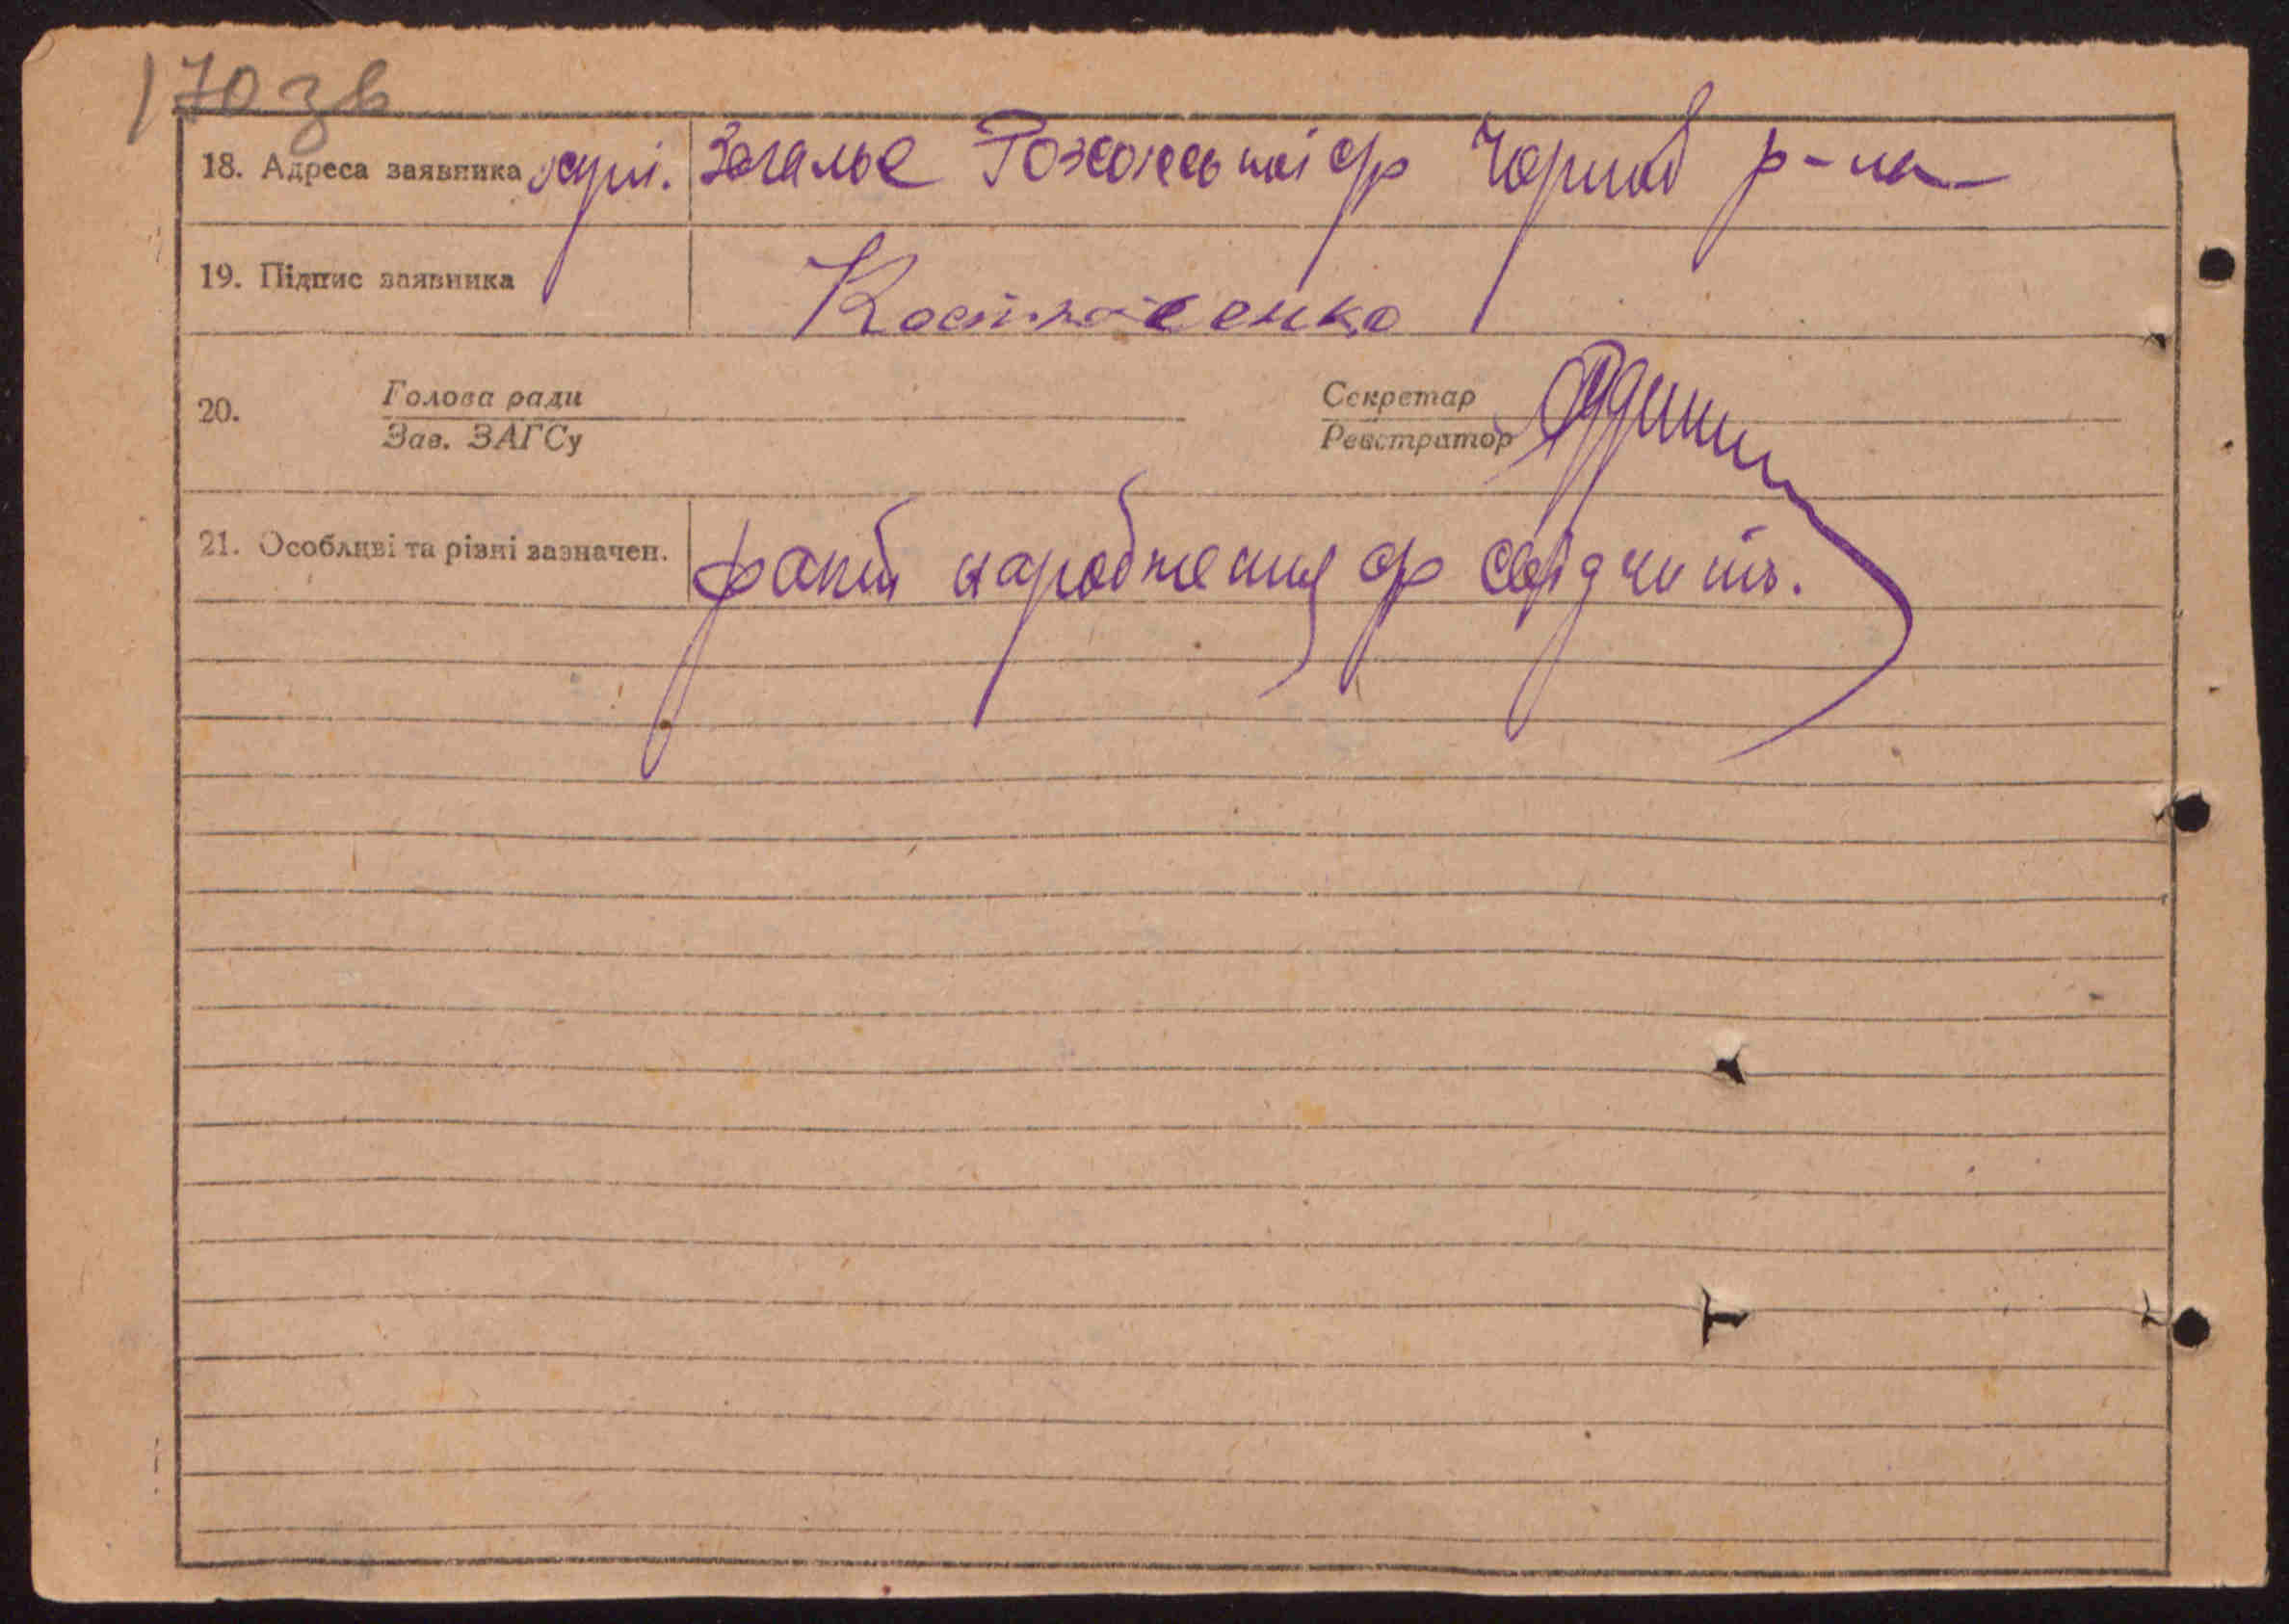 170 зв
18. Адреса заявника хут. Загалье Рожовської с/р Чорноб р-на
19. Підпис заявника Костюченко
20. Голова ради Секретар
Зав. ЗАГСу Реєстратор
21. Особливі та різні зазначен. факт народження с/р свідчить.